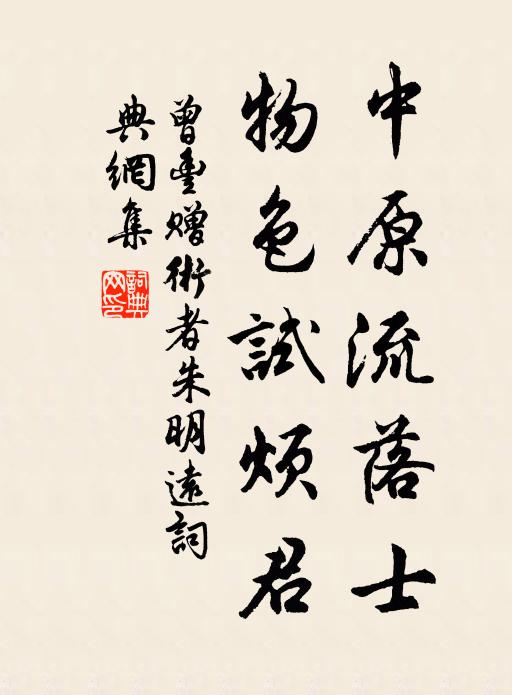 中原流落士
物色試煩君
曾豊贈術者朱明遠詞
典網集
詞典網印